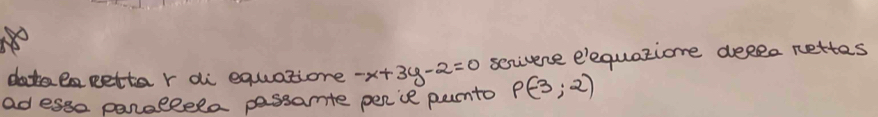 N8
data la retta r di equazione -x+3y-2=0 scrivere l'equazione della retta s
ad essa parallela passante per il punto P(-3;2)